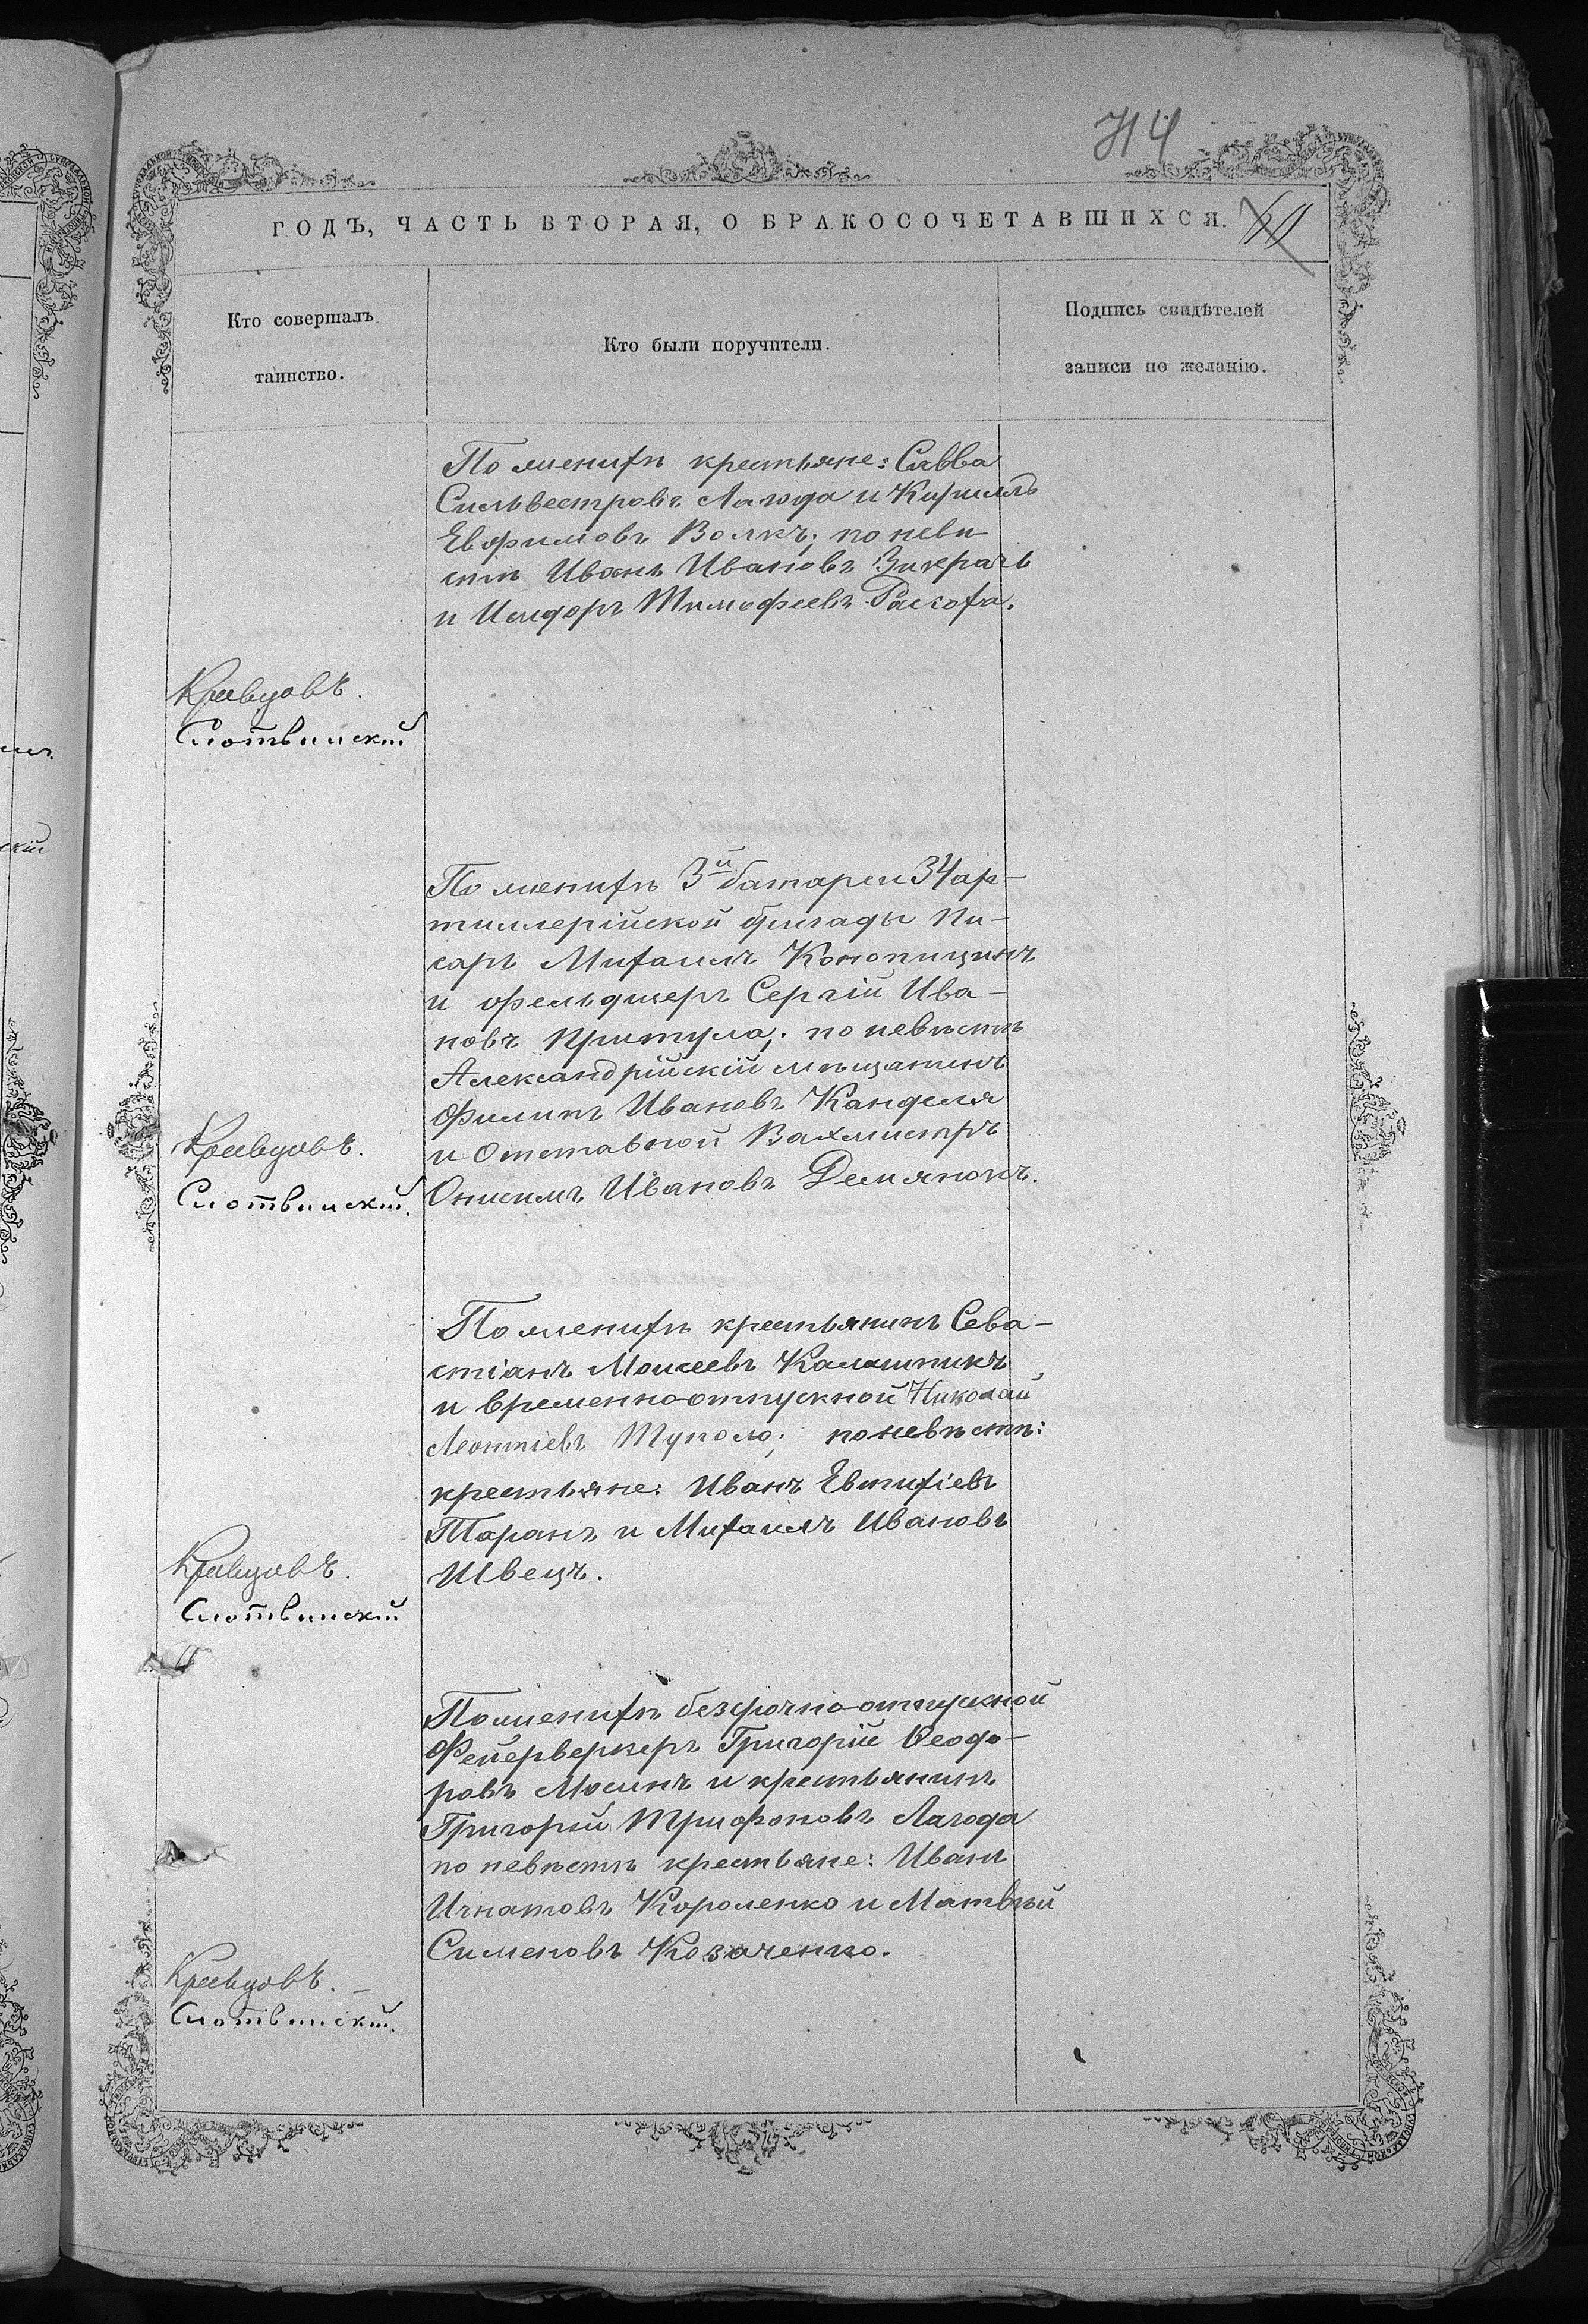 714
ГОДЪ, ЧАСТЬ ВТОРАЯ, О БРАКОСОЧЕТАВШИХСЯ.
Кто совершалъ
таинство.
Кто были поручители.
Подпись свидѣтелей
записи по желанію.
По женихѣ крестьяне: Савва
Сильвестровъ Лагода и Кириллъ
Евфимовъ Волкъ; по невѣ-
стѣ Иванъ Ивановъ Зикрачъ
и Исидоръ Тимофеевъ
Кравцовъ.
Слотвинскій
По женихѣ 3й батареи 34 ар-
тиллерійской бригады Пи-
сарь Михаилъ Конопицинъ
и фельдшеръ Сергій Ива-
новъ Притула; по невѣстѣ
Александрійскій мѣщанинъ
Филипъ Ивановъ Канделя
и Отставной Вахмистръ
Онисимъ Ивановъ Демянокъ.
Кравцовъ.
Слотвинскій.
По женихѣ крестьянинъ Сева-
стіанъ Моисеевъ Калашникъ
и временно-отпускной Николай
Леонтіевъ Туполо; по невѣстѣ:
крестьяне: Иванъ Евтихіевъ
Таранъ и Михаилъ Ивановъ
Швецъ.
Кравцовъ.
Слотвинскій
По женихѣ безсрочно-отпускной
Фейерверкеръ Григорій Ѳеодо-
ровъ Мосинъ и крестьянинъ
Григорій Трифоновъ Лагода
по невѣстѣ крестьяне: Иванъ
Игнатовъ Короленко и Матвѣй
Сименовъ Козаченко.
Кравцовъ.
Слотвинскій.